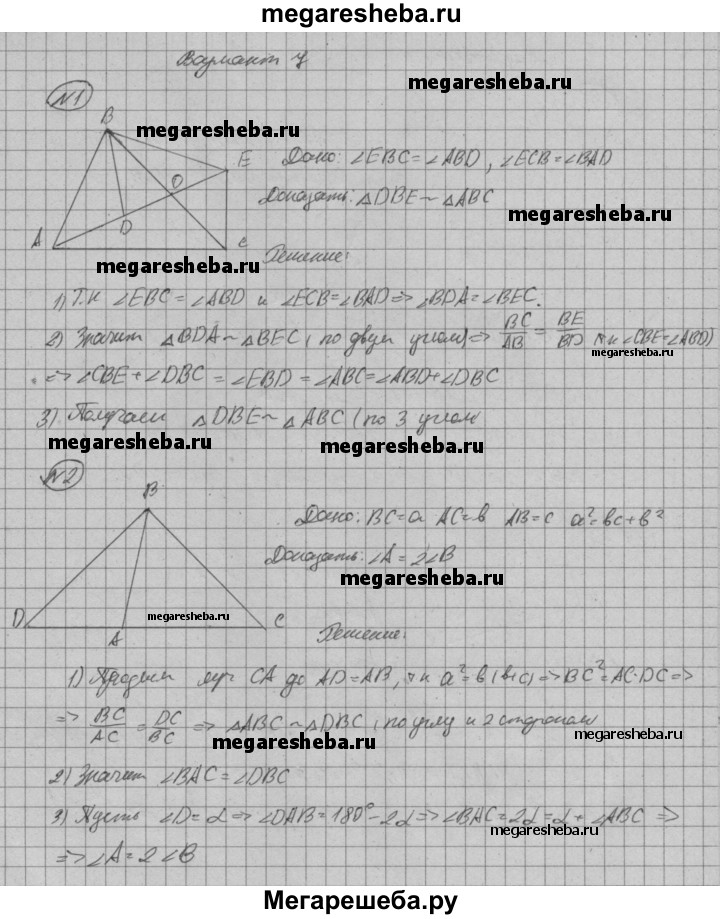 megaresheba.ru
Вариант 4
megaresheba.ru
№1
B
megaresheba.ru
E
Дано: ∠EBC=∠ABD, ∠ECB=∠BAD
O
Доказать: △DBE~△ABC
megaresheba.ru
D
A
C
Решение:
megaresheba.ru
1) Т.к ∠EBC=∠ABD и ∠ECB=∠BAD=>∠BDA=∠BEC.
2) Значит △BDA~△BEC (по двум углам)=> BC/AB = BE/BD т.к ∠CBE=∠ABD)
megaresheba.ru
=> ∠CBE+∠DBC=∠EBD=∠ABC=∠ABD+∠DBC
3) Получаем △DBE~△ABC (по 3 углам
megaresheba.ru
megaresheba.ru
№2
B
Дано: BC=a AC=в AB=c a²=вc+в²
Доказать: ∠A=2∠B
megaresheba.ru
megaresheba.ru
D
A
C
Решение:
1) Продлим луч CA до AD=AB, т.к a²=в(в+c)=>BC²=AC·DC=>
=> BC/AC = DC/BC => △ABC~△DBC (по углу и 2 сторонам
megaresheba.ru
megaresheba.ru
2) Значит ∠BAC=∠DBC
3) Пусть ∠D=α=>∠DAB=180°-2α=>∠BAC=2α=α+∠ABC =>
megaresheba.ru
=>∠A=2∠B
megaresheba.ru
Мегарешеба.ру